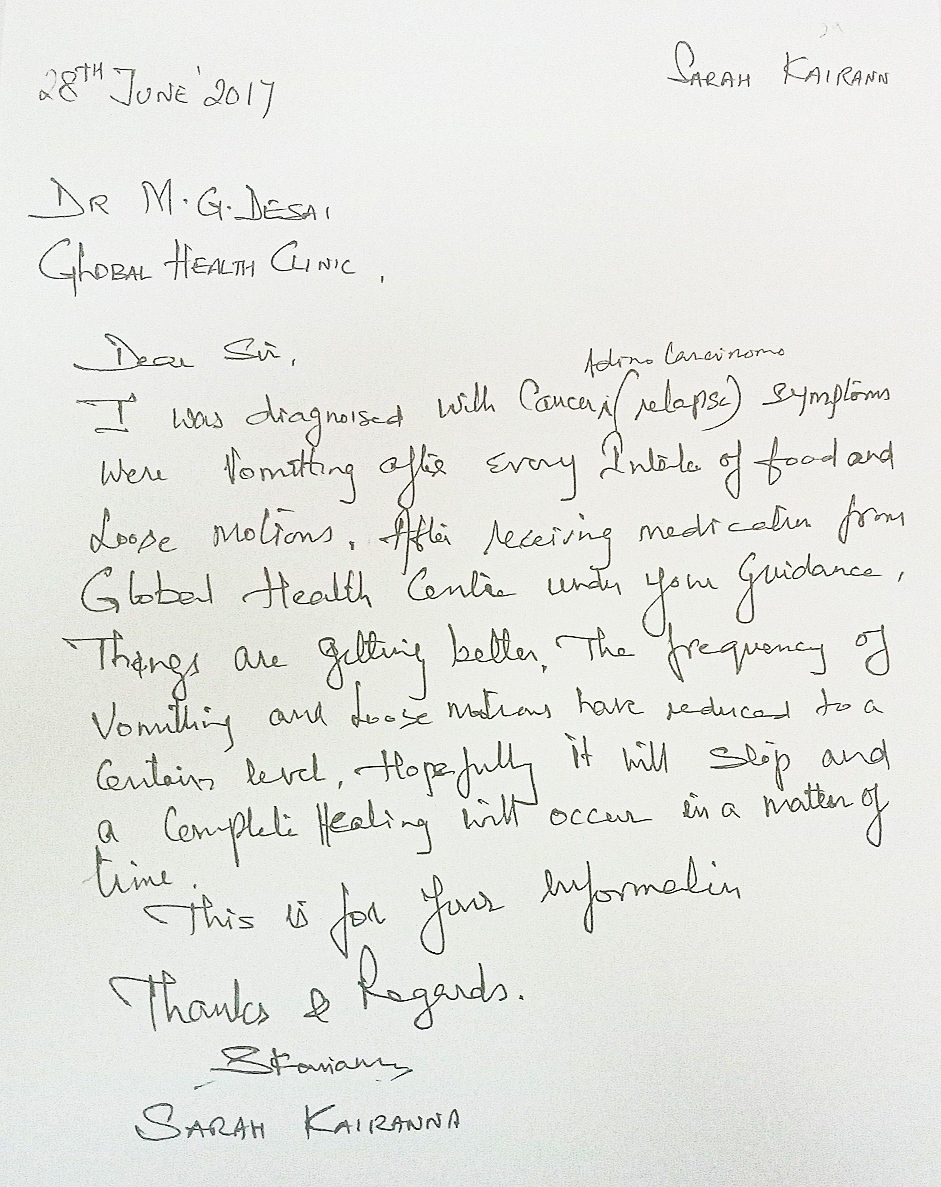 28TH JUNE' 2017
SARAH KAIRANN
DR M.G. DESAI
GLOBAL HEALTH CLINIC,
Dear Sir,
Adino Carcinomo
I was diagnoised with Cancer (relapse) symptoms
Were Vomitting after Every Intake of food and
Loose Motions. After receiving medication from
Global Health Centre under your Guidance,
Things are getting better, The frequency of
Vomitting and Loose Motions have reduced to a
Certain level, Hopefully it will stop and
a Complete Healing will occur in a matter of
time.
This is for your information
Thanks & Regards.
SARAH KAIRANNA